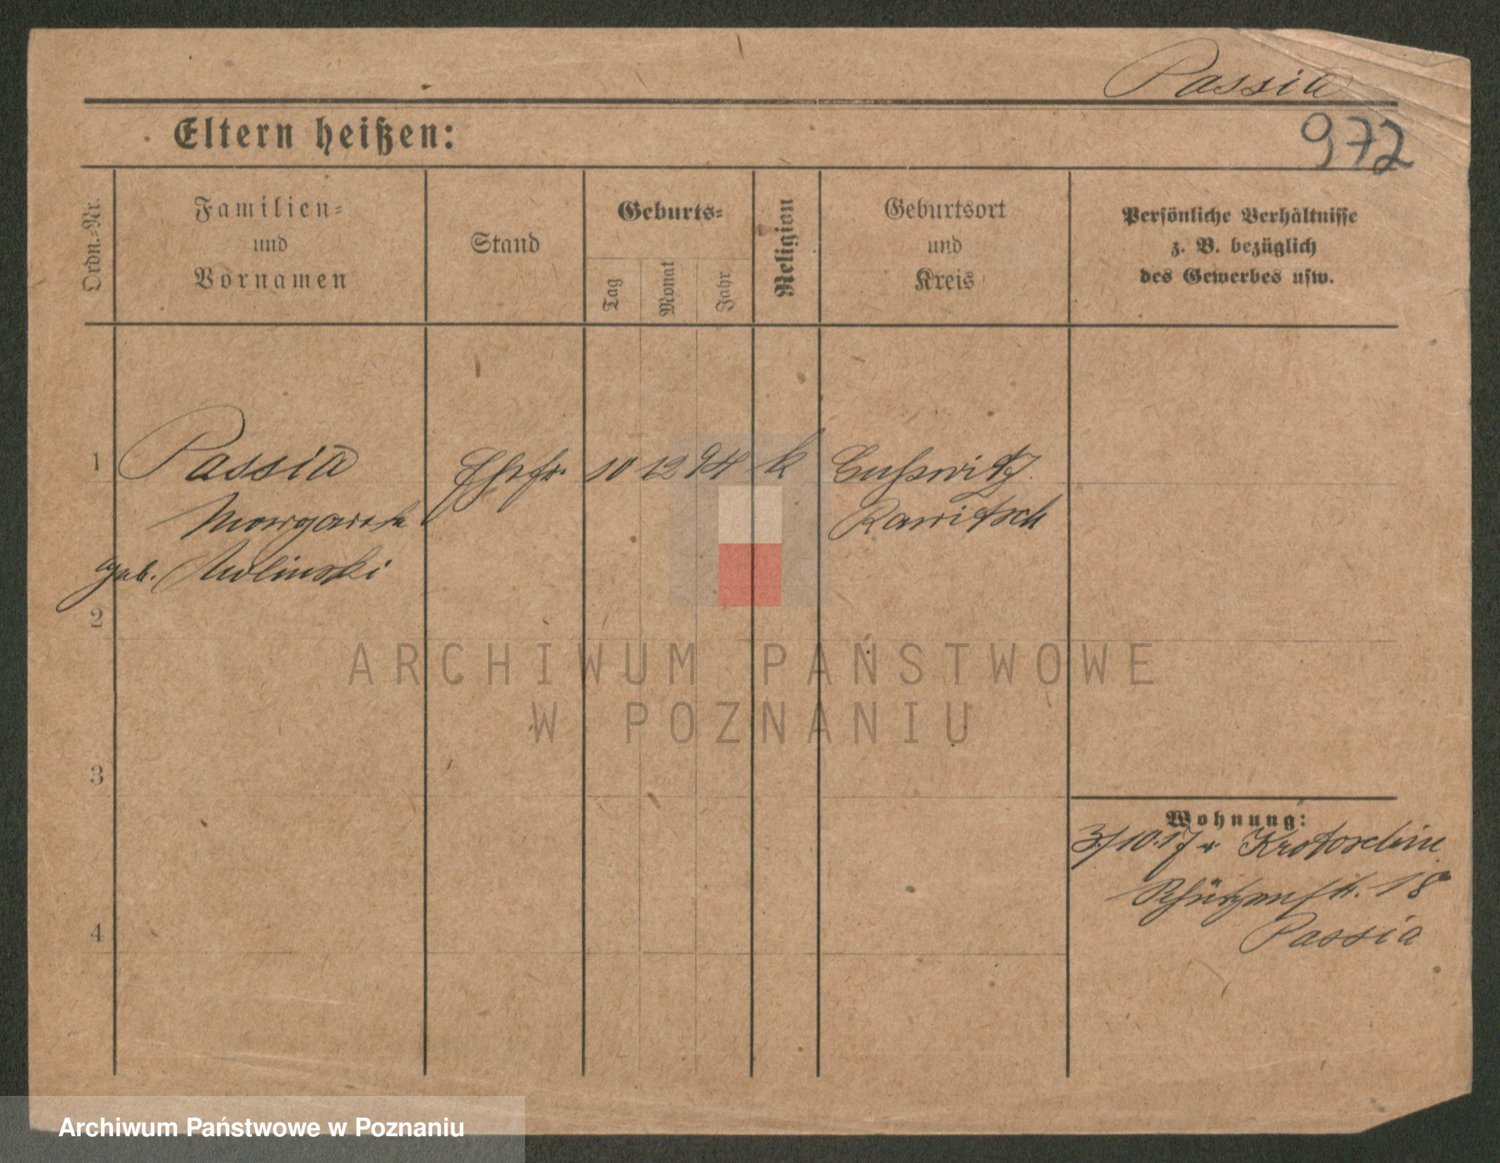 Passia
972
Eltern heißen:
Ordn.-Nr.
Familien-
und
Vornamen
Stand
Geburts-
Tag
Monat
Jahr
Religion
Geburtsort
und
Kreis
Persönliche Verhältnisse
z. B. bezüglich
des Gewerbes usw.
1
Passia
Ehefr.
10
12
94
k
Gusswitz
Margarete
Rawitsch
geb.
2
ARCHIWUM PAŃSTWOWE
W POZNANIU
3
Wohnung:
3/10.17 v Krotoschin
Schützenstr. 18a
4
Passia
Archiwum Państwowe w Poznaniu